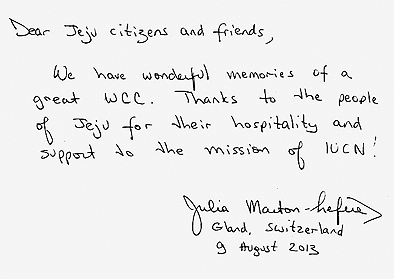 Dear Jeju citizens and friends,
We have wonderful memories of a
great WCC. Thanks to the people
of Jeju for their hospitality and
support to the mission of IUCN!
Julia Marton-Lefèvre
Gland, Switzerland
9 August 2013